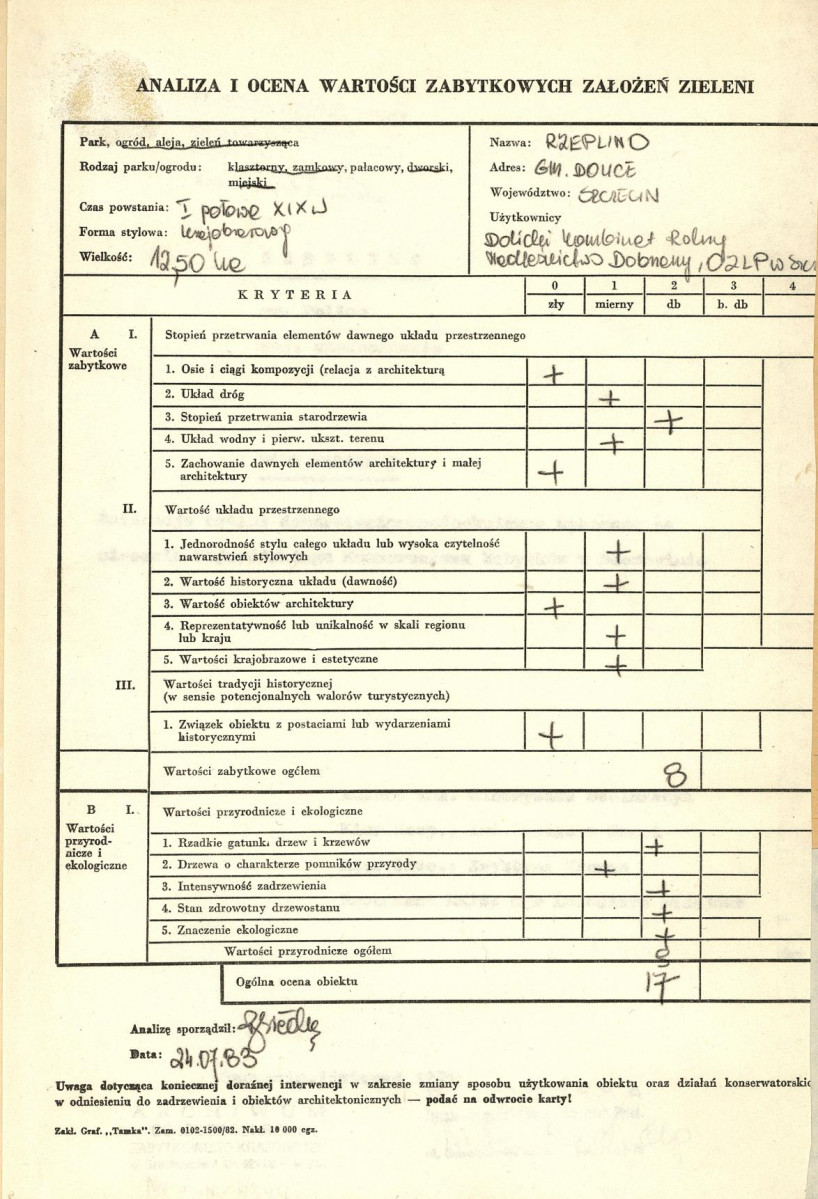 ANALIZA I OCENA WARTOŚCI ZABYTKOWYCH ZAŁOŻEŃ ZIELENI
Park, ogród, aleja, zieleń towarzysząca
Rodzaj parku/ogrodu: klasztorny, zamkowy, pałacowy, dworski,
miejski
Czas powstania: I połowa XIX w
Forma stylowa: krajobrazowy
Wielkość: 12,50 ha
Nazwa: RZEPLINO
Adres: GM. DOLICE
Województwo: SZCZECIN
Użytkownicy
Dolicki Kombinat Rolny
Nadleśnictwo Dobrzany, OZLP w
KRYTERIA
0 1 2 3 4
zły mierny db b. db
A I. Stopień przetrwania elementów dawnego układu przestrzennego
Wartości
zabytkowe
1. Osie i ciągi kompozycji (relacja z architekturą +
2. Układ dróg +
3. Stopień przetrwania starodrzewia +
4. Układ wodny i pierw. ukszt. terenu +
5. Zachowanie dawnych elementów architektury i małej
architektury +
II. Wartość układu przestrzennego
1. Jednorodność stylu całego układu lub wysoka czytelność
nawarstwień stylowych +
2. Wartość historyczna układu (dawność) +
3. Wartość obiektów architektury +
4. Reprezentatywność lub unikalność w skali regionu
lub kraju +
5. Wartości krajobrazowe i estetyczne +
III. Wartości tradycji historycznej
(w sensie potencjonalnych walorów turystycznych)
1. Związek obiektu z postaciami lub wydarzeniami
historycznymi +
Wartości zabytkowe ogółem 8
B I. Wartości przyrodnicze i ekologiczne
Wartości
przyrod-
nicze i
ekologiczne
1. Rzadkie gatunki drzew i krzewów +
2. Drzewa o charakterze pomników przyrody +
3. Intensywność zadrzewienia +
4. Stan zdrowotny drzewostanu +
5. Znaczenie ekologiczne +
Wartości przyrodnicze ogółem
Ogólna ocena obiektu 17
Analizę sporządził:
Data: 24.07.83
Uwaga dotycząca koniecznej doraźnej interwencji w zakresie zmiany sposobu użytkowania obiektu oraz działań konserwatorskic
w odniesieniu do zadrzewienia i obiektów architektonicznych — podać na odwrocie karty!
Zakł. Graf. „Tamka". Zam. 0102-1500/82. Nakł. 10 000 egz.